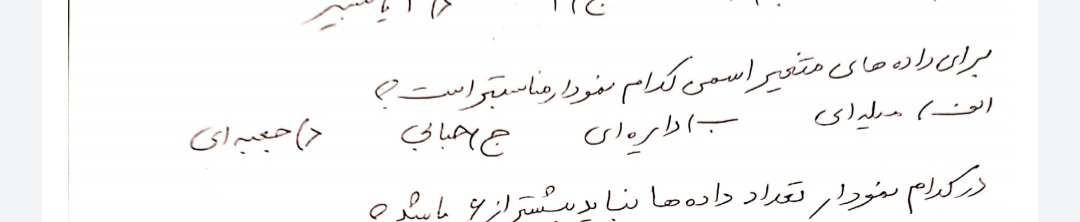 ج) ۲ د) ۲ یا بیشتر
برای داده های متغیر اسمی کدام نمودار مناسبتر است؟
الف) میله‌ای ب) دایره‌ای ج) حبابی د) جعبه‌ای
در کدام نمودار تعداد داده ها نباید بیشتر از ۶ باشد؟